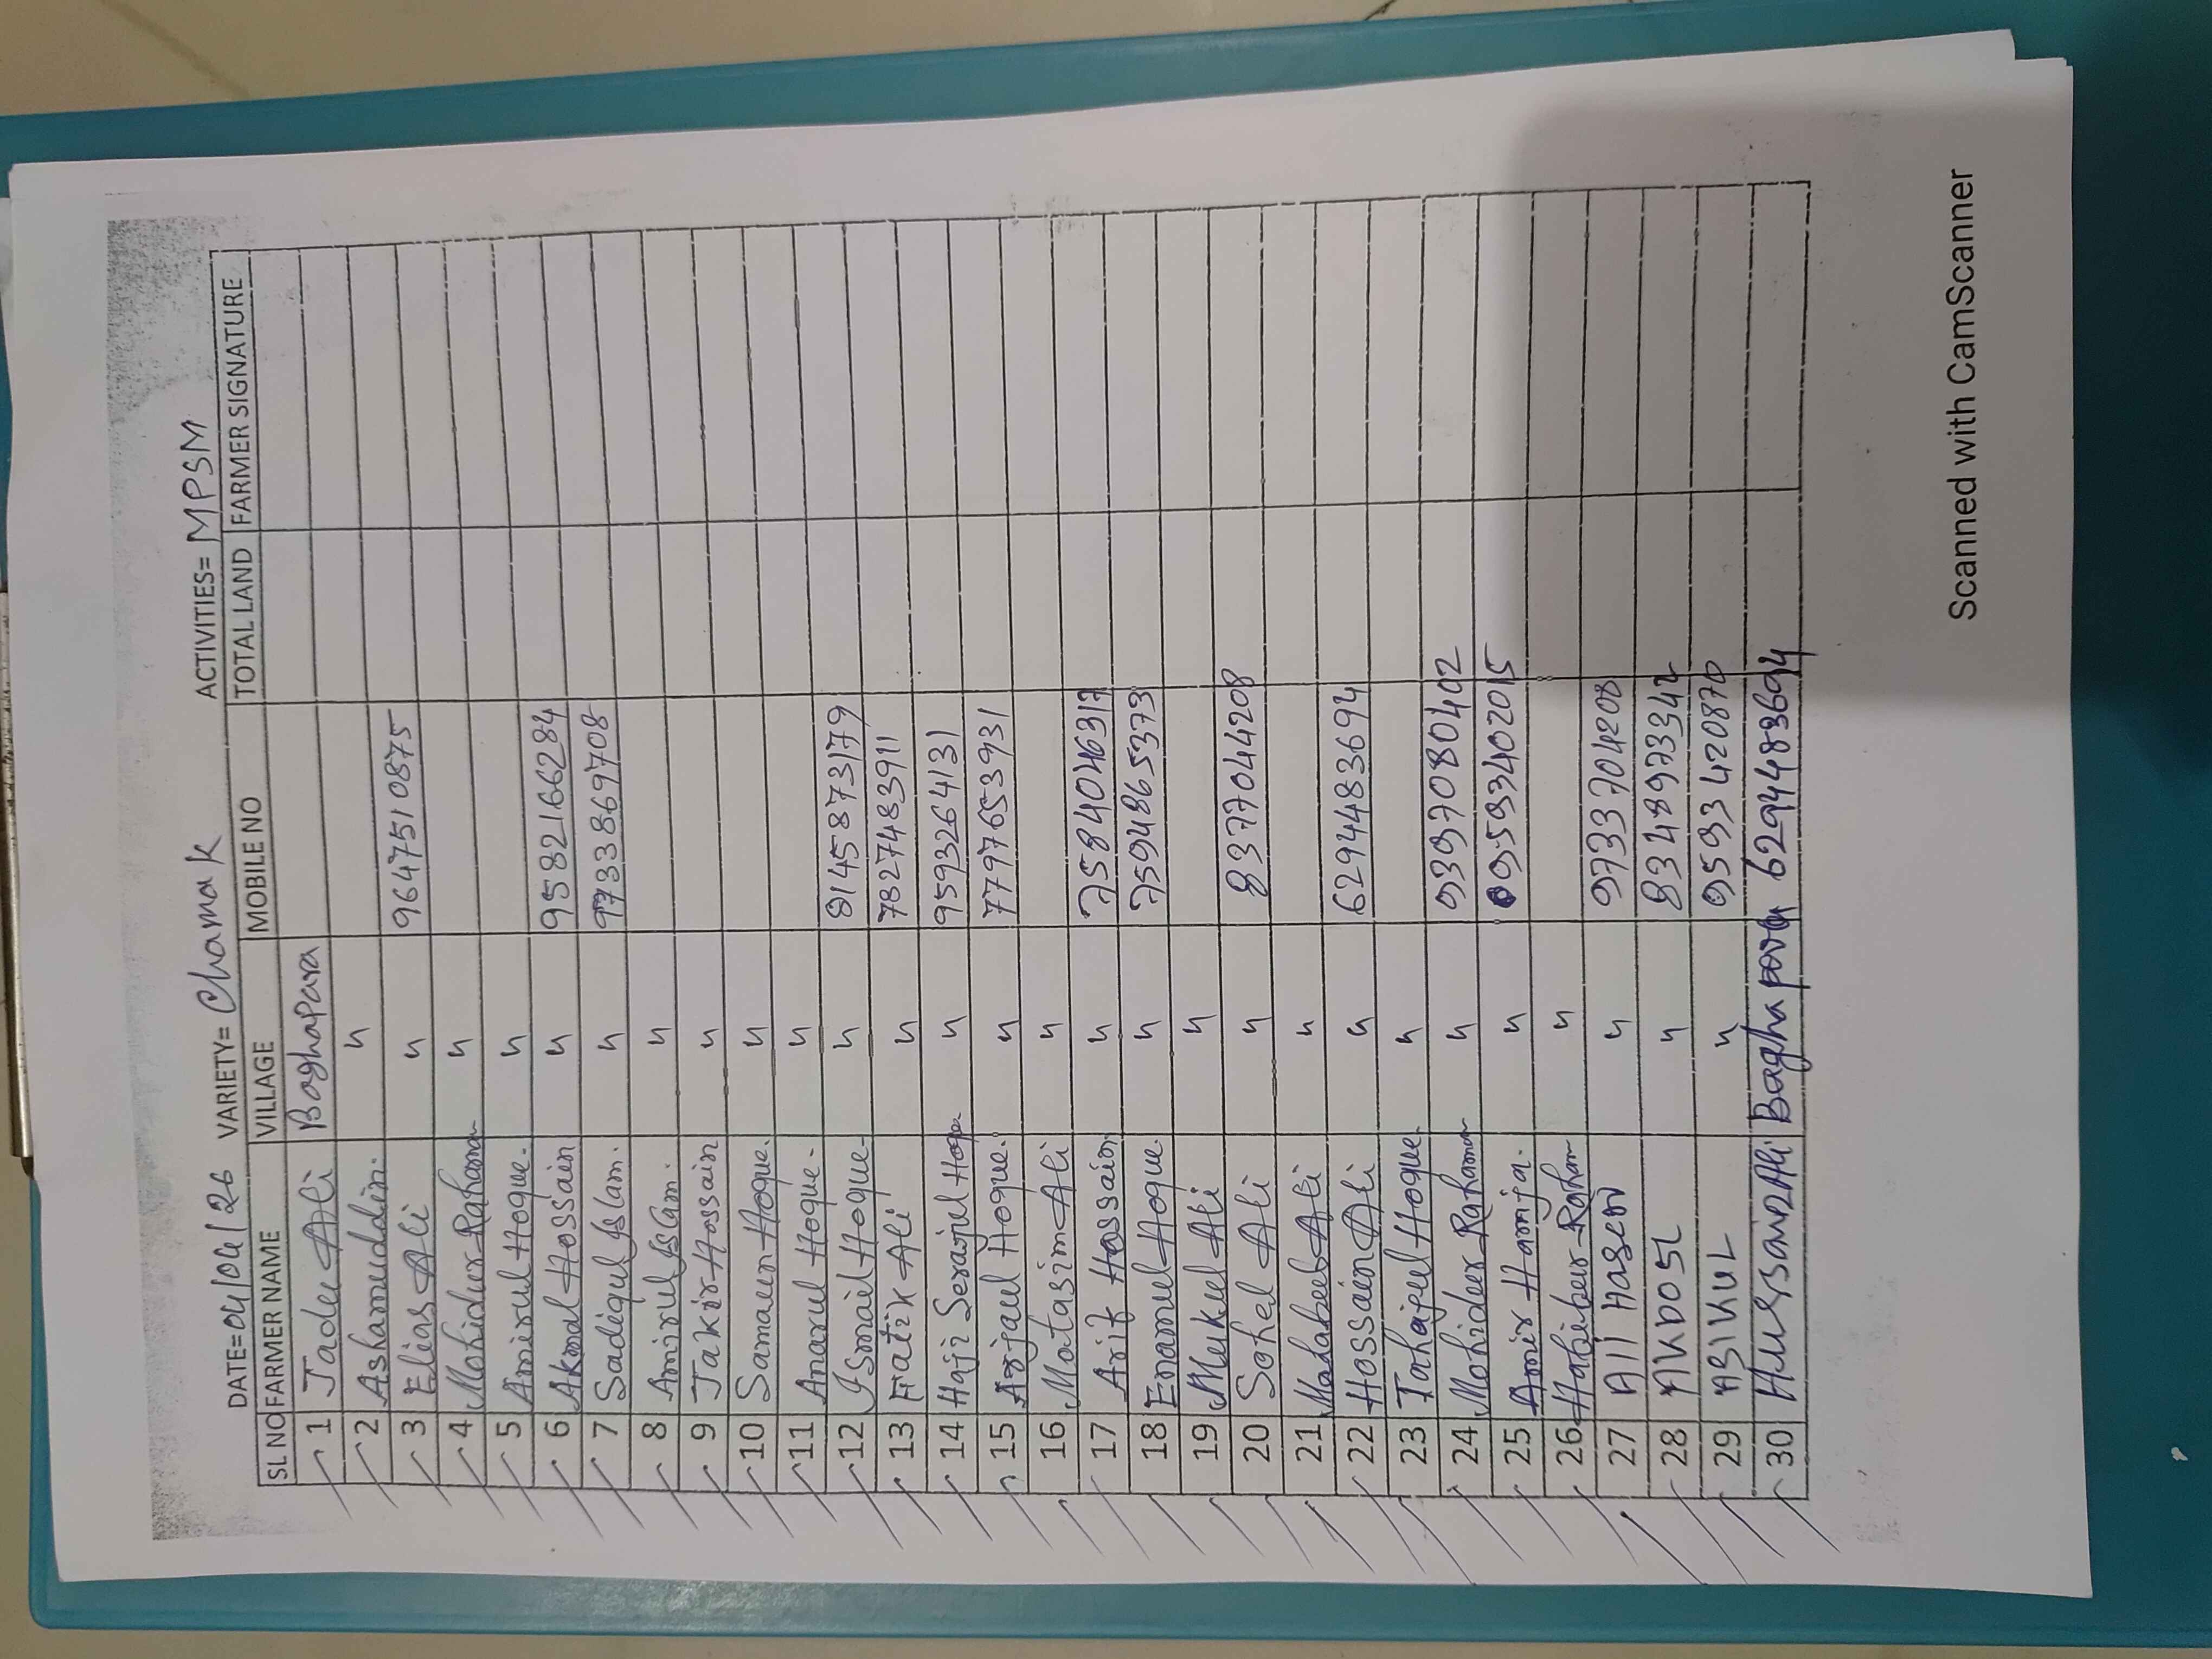 DATE=04/04/26 VARIETY= Chamak ACTIVITIES= MPSM
SL NO FARMER NAME VILLAGE MOBILE NO TOTAL LAND FARMER SIGNATURE
1 Jadu Ali BaghaPara
2 Ashamuddin. "
3 Elias Ali " 9647510875
4 Mohidur Rahaman "
5 Amirul Hoque. "
6 Akmal Hossain " 9582166284
7 Sadequl Islam. " 9733869708
8 Amirul Islam. "
9 Jakir Hossain "
10 Samaun Hoque. "
11 Anarul Hoque. "
12 Ismail Hoque " 8145873179
13 Fatik Ali " 7827483911
14 Haji Serajul Hoque " 9593264131
15 Arjaul Hoque. " 7797653931
16 Matasim Ali "
17 Arif Hossain " 7584046317
18 Enamul Hoque " 7594865373
19 Mukul Ali "
20 Sohel Ali " 8377044208
21 Madabul Ali "
22 Hossain Ali " 6294483694
23 Tahajul Hoque. "
24 Mohidur Rahaman " 9397080402
25 Amir Hamja. " 9593402015
26 Habibur Raham "
27 All Hasen " 9733704208
28 AKDOSL " 8348973342
29 ASIKUL " 9593420870
30 Hussain Ali Bagha para 6294483694
Scanned with CamScanner